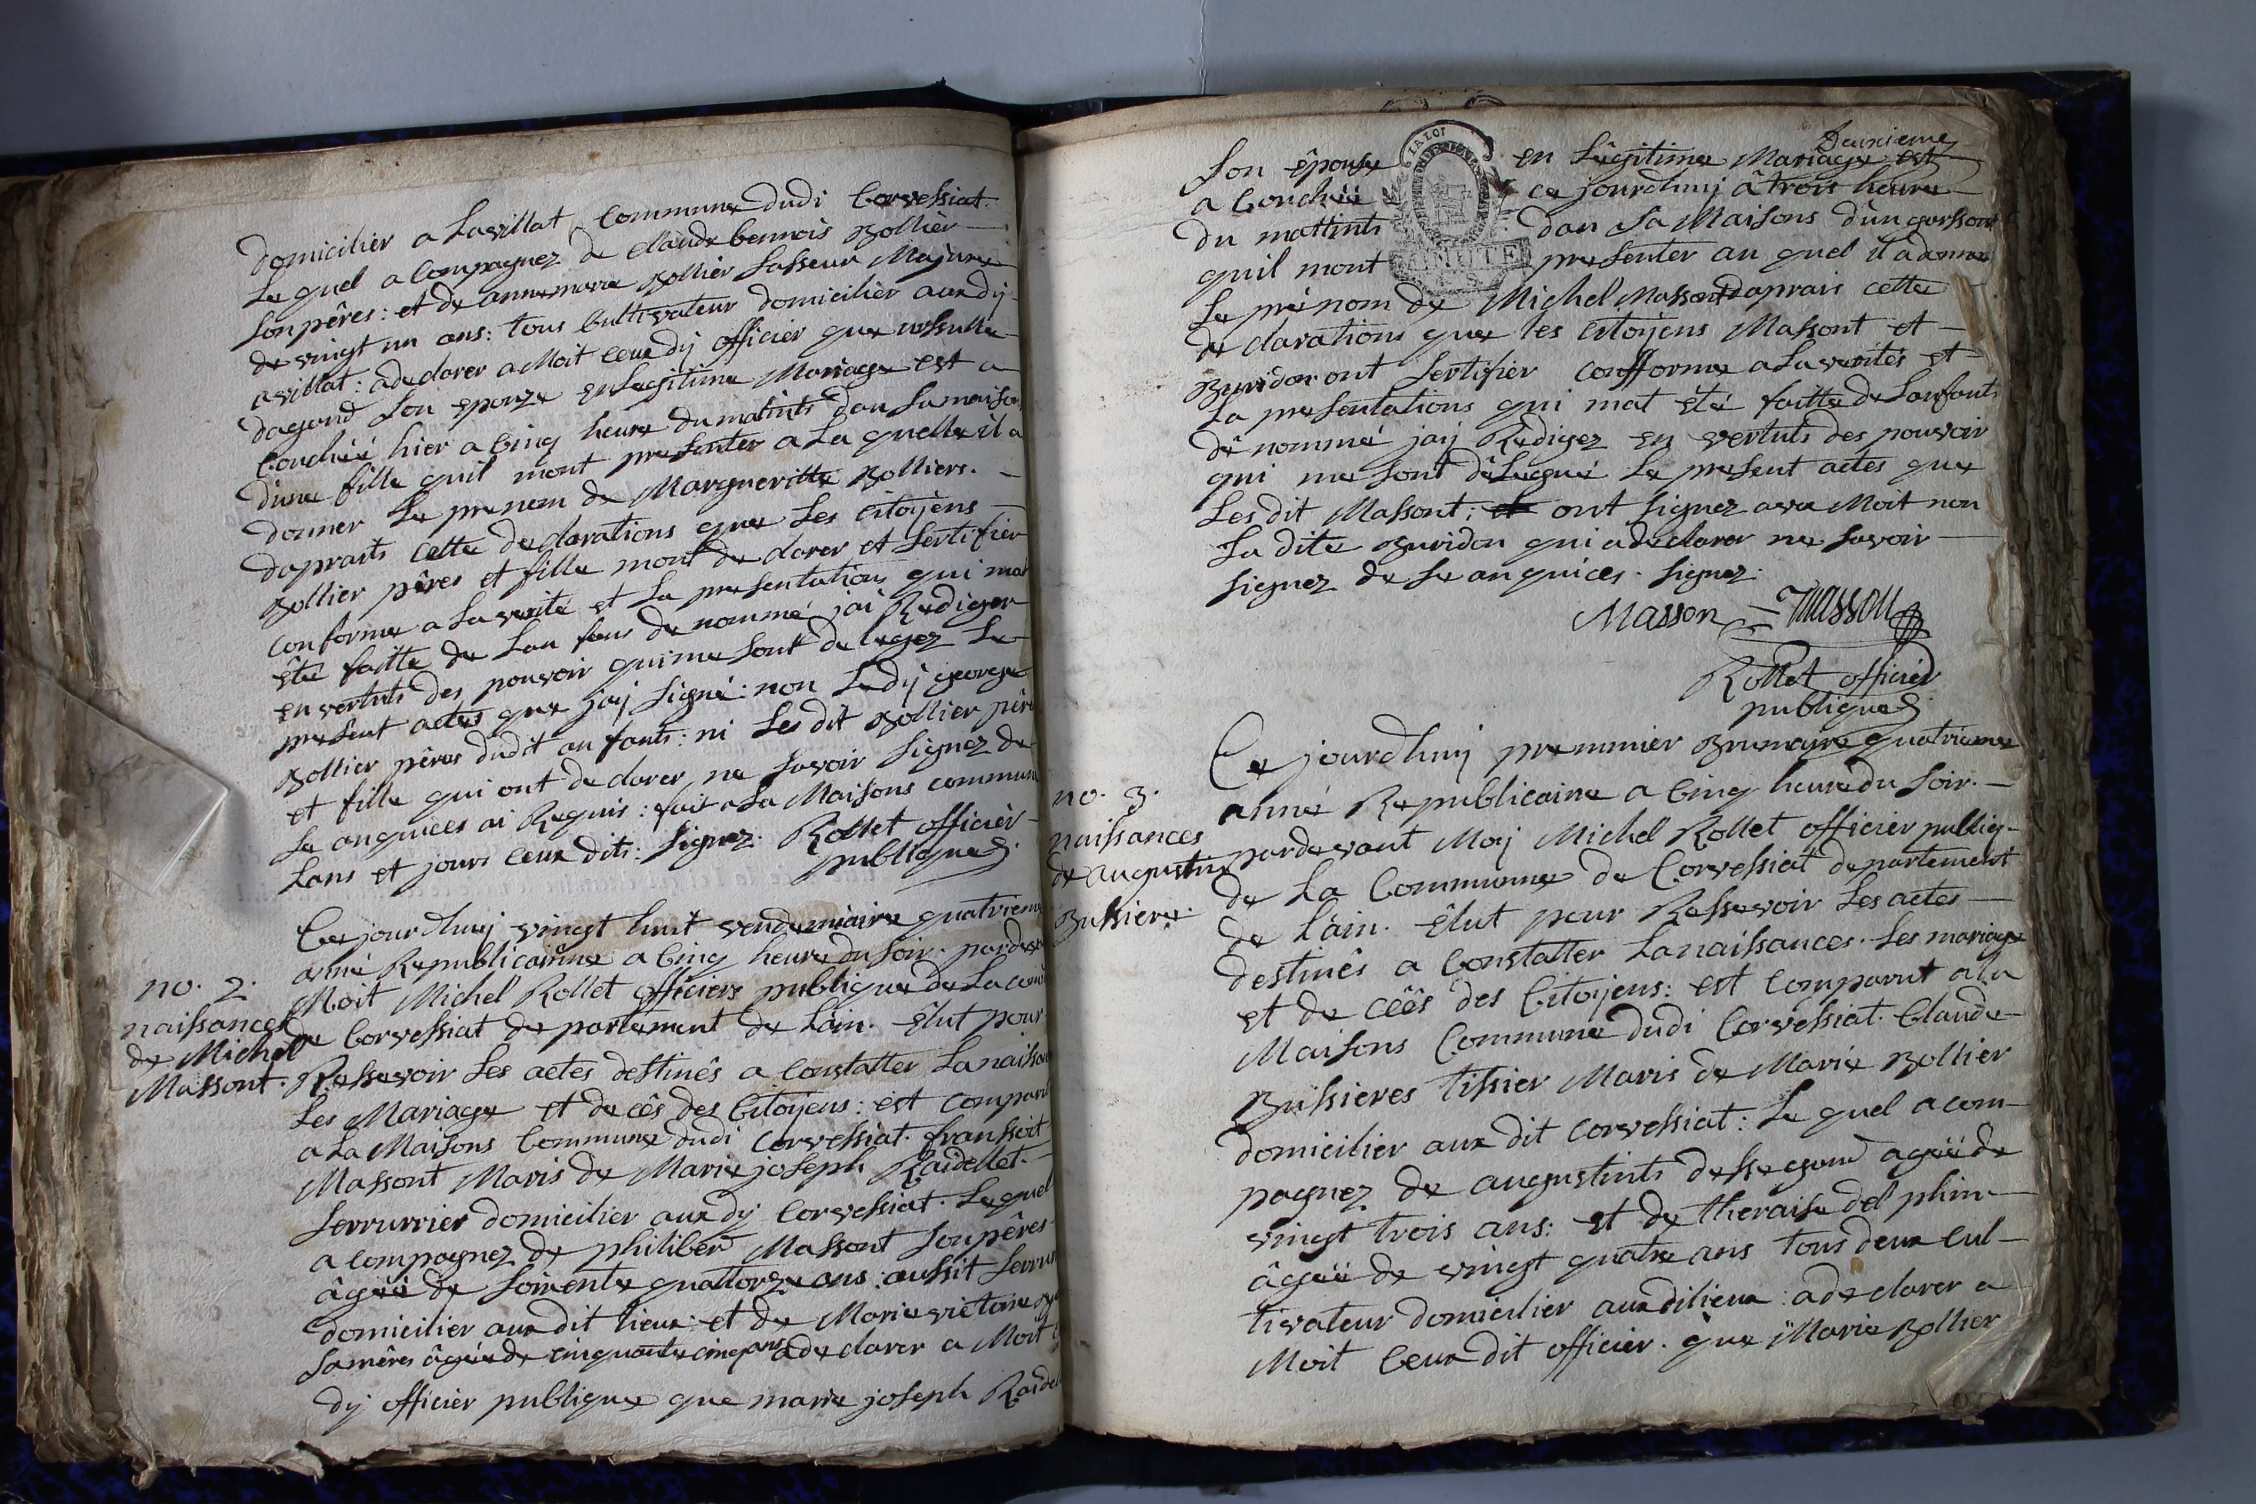 domicilier a Lavillat Commune dudi Corvessiat.
Le quel a Compagnez de claude bennois Bollier
Son pêres: et de anne marie Bollier Sasseur Majure
de vingt un ans: tous Cultivateur domicilier aux dij
avillat: a declarer a Moit ceux dij officier que
dagond Son epouze en Legitime Mariage est a
Couchéé hier a Cinq heure du matints dan Sa maison
d'une fille quil mont presenter a La quelle il a
donner Le prenom de Margueritte Bolliers.
dapraits cette declarations que Les Citoijens
Bollier pêres et fille mont de clarer et Sertifier
conforme a La verité et La presentations qui mat
êté faitte de Lan fans de nommé jai Rediger
en vertuts des pouvoir qui me Sont de legez Le
present actes que jaij Signé: non Ledij george
Bollier pêres dudit an fants: ni Les dit Bollier pêre
et fille qui ont de clarer ne Savoir Signez de
Ce anquices ai Requis: fait a La Maisons commune
Lans et jours ceux dits: Signez. Rollet officièr
publique
Ce jourdhuij vingt huit vendemiaire quatrieme
anné Republicainne a Cinq heure du Soir. pardev
Moit Michel Rollet officiers publique de La com
de Corvessiat de partement de Lain. êlut pour
no. 2.
naissances
de Michel
Massont.
Ressevoir Les actes destinês a Constatter La naissan
Les Mariage et de cês des Citoijens: est comparu
a La Maisons Commune dudi Corvessiat. franssoit
Massont Maris de Marie joseph Raidellet.
Serrurrier domicilier aux dij Corvessiat. Lequel
a Compagnez de philiber Massont Son pêres
âgéé de Soixente quattorze ans: aussit Serrur
domicilier aux dit lieux: et de Marie victoire
Sa mêres âgéé de cinquante cinq ans a de clarer a Moit
dij officier publique que marie joseph Raidel
Son épouse en Légitime Mariage est Deuxieme
a Couchéé ce jourdhuij â trois heure
du mattints dan Sa Maisons d'un garsson
quil mont presenter au quel il a donner
Le prénom de Michel Massont daprais cette
de clarations que les Citoijens Massont et
Buridon ont Sertifier confforme a La verités et
La presentations qui mat êté faitte de Lanfants
dê nommé jaij Rêdigez en vertuts des pouvoir
qui me Sont dêLegué Le present actes que
Les dit Massont; et ont Signez avec Moit non
La dite Buridon qui a de clarer ne Savoir
Signez de Ce anquices. Signez.
Masson = Masson
Rollet officièr
publique
LA LOI
no. 3.
naissances
de augustin
Bussiere.
Ce jourdhuij premmier Brumaire quatrieme
anné Republicaine a Cinq heure du Soir.
pardevant Moij Michel Rollet officier publiq
de La Commune de Corvessiat de partement
de L'ain. Êlut pour Ressevoir Les actes
destinês a Constatter La naissances. Les mariage
et de céês des Citoijens: est comparut a La
Maisons Commune dudi Corvessiat. Claude
Bussieres tissier Maris de Marie Bollier
domicilier aux dit Corvessiat: Le quel a com-
pagnez de augustints dessegond agéé de
vingt trois ans: et de theraise del phin
âgéé de vingt quatre ans tous deux cul-
tivateur domicilier aux dilieux: a de clarer a
Moit Ceux dit officier. que Marie Bollier